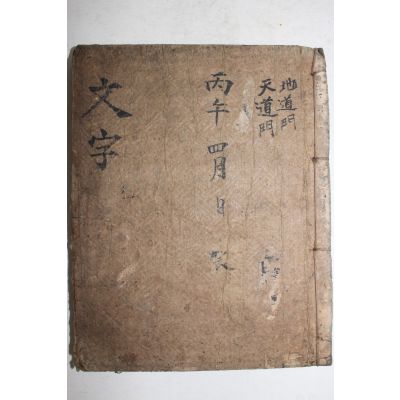 地道門
天道門
丙午 四月 日
文字